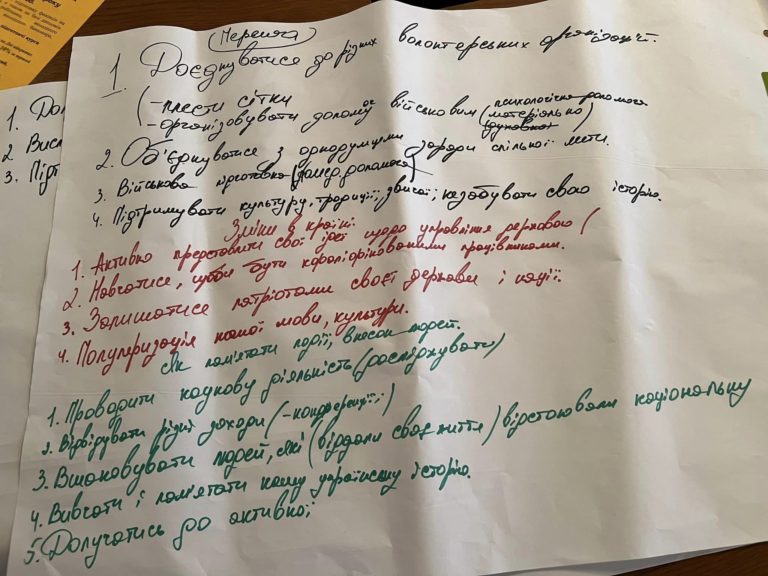 (Перемога)
1. Доєднуватися до різних волонтерських організацій.
- плести сітки
- організовувати допомогу військовим (психологічна допомога
матеріально)
духовною
2. Об'єднуватися з однодумцями заради спільної мети.
3. Військова підготовка (домед. допомога)
4. Підтримувати культуру, традиції, звичаї; не забувати свою історію.
Зміни в країні:
1. Активно представляти свої ідеї щодо управління державою (
2. Навчатися, щоби бути кваліфікованими працівниками.
3. Залишатися патріотами своєї держави і нації.
4. Популяризація нашої мови, культури.
Як пам'ятати події, внесок людей.
1. Проводити наукову діяльність (досліджувати)
2. Відвідувати різні заходи (-конференції;)
3. Вшановувати людей, які (віддали своє життя) відстоювали національну
4. Вивчати і пам'ятати нашу українську історію.
5. Долучатись до активної
1. До
2 Висл
3. Підт